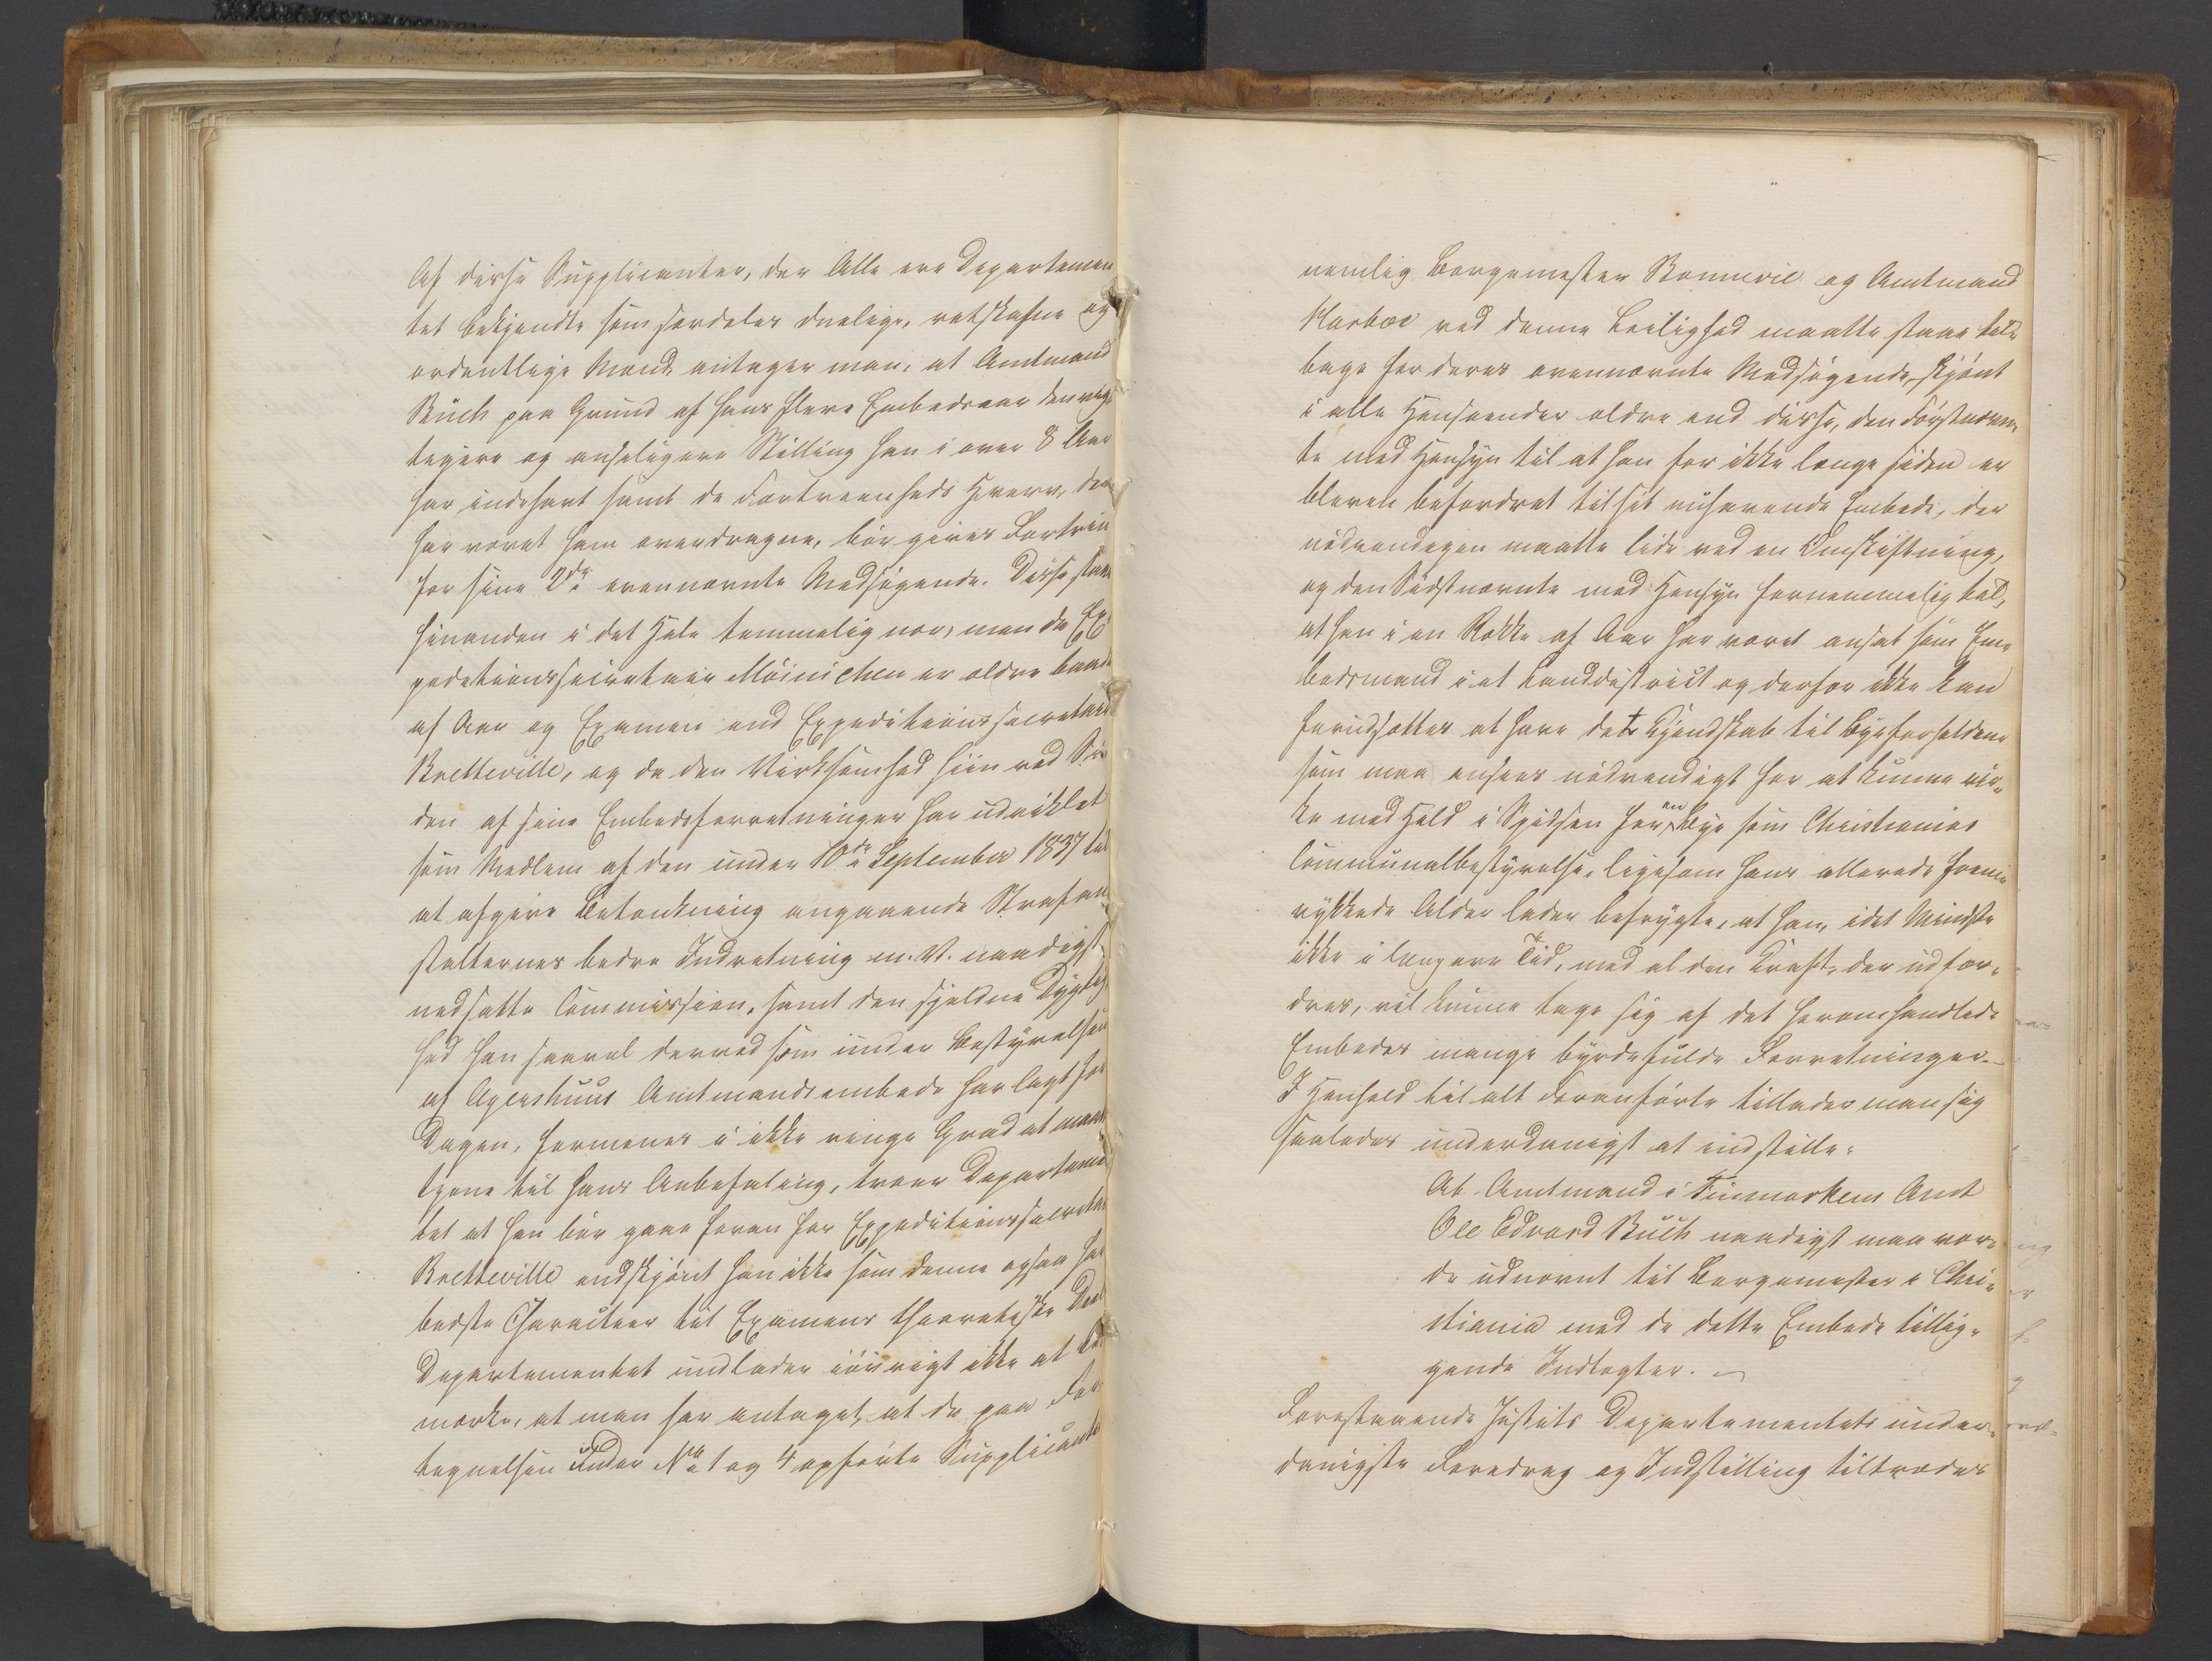 Af disse Supplicanter, der Alle ere Departemen
tet bekjendte som særdeles duelige, retskafne og
ordentlige Mænd, antager man, at Amtmand
Buch paa Grund af hans flere Embedsaar den vig-
tigere og anseligere Stilling han i over 8 Aar
har indehavt samt de Fortroenheds Hverv, der
har været ham overdragne, bør gives Fortrin
for sine 2de ovennævnte Medsøgende. Disse staae
hinanden i det Hele temmelig nær, men da Ex-
peditionssecretair Möinichen er ældre baade
af Aar og Examen end Expeditionssecretair
Bretteville, og da den Virksomhed hiin ved Si-
den af sine Embedsforretninger har udviklet
som Medlem af den under 10de September 1837 til
at afgive Betænkning angaaende Strafan-
stalternes bedre Indretning m. V. naadigst
nedsatte Commission, samt den sjeldne Dygtig-
hed han saavel derved som under Bestyrelsen
af Agershuus Amtmandsembede har lagt for
Dagen, formenes i ikke ringe Grad at maatte
tjene til hans Anbefaling, troer Departemen
tet at han bør gaae foran for Expeditionssecretair
Bretteville endskjønt han ikke som denne ogsaa har
bedste Characteer til Examens theoretiske Deel
Departementet undlader iøvrigt ikke at be-
mærke, at man har antaget, at de paa For-
tegnelsen under No 1 og 4 opførte Supplicanter
nemlig Borgemester Bonnevie og Amtmand
Harboe ved denne Leilighed maatte staae til-
bage for deres ovennævnte Medsøgende, skjønt
i alle Henseender ældre end disse, den Førstnævn-
te med Hensyn til at han for ikke længe siden er
bleven befordret til sit nuhavende Embede, der
nødvendigen maatte lide ved en Omskiftning,
og den Sidstnævnte med Hensyn fornemmelig til,
at han i en Række af Aar har været ansat som Em-
bedsmand i et Landdistrict og derfor ikke kan
forudsættes at have det Kjendskab til Byeforholdene
som maa ansees nødvendigt for at kunne vir-
ke med Held i Spidsen for en Bye som Christianias
Communalbestyrelse, ligesom hans allerede frem-
rykkede Alder lader befrygte, at han, idet Mindste
ikke i længere Tid, med al den Kraft, der udfor-
dres, vil kunne tage sig af det heromhandlede
Embedes mange byrdefulde Forretninger.
I Henhold til alt Foranførte tillader man sig
saaledes underdanigst at indstille:
At Amtmand i Finmarkens Amt
Ole Edvard Buch naadigst maa vor-
de udnævnt til Borgemester i Chri-
stiania med de dette Embede tillig-
gende Indtægter.
Forestaaende Justits Departementets under-
danigste Foredrag og Indstilling tiltrædes